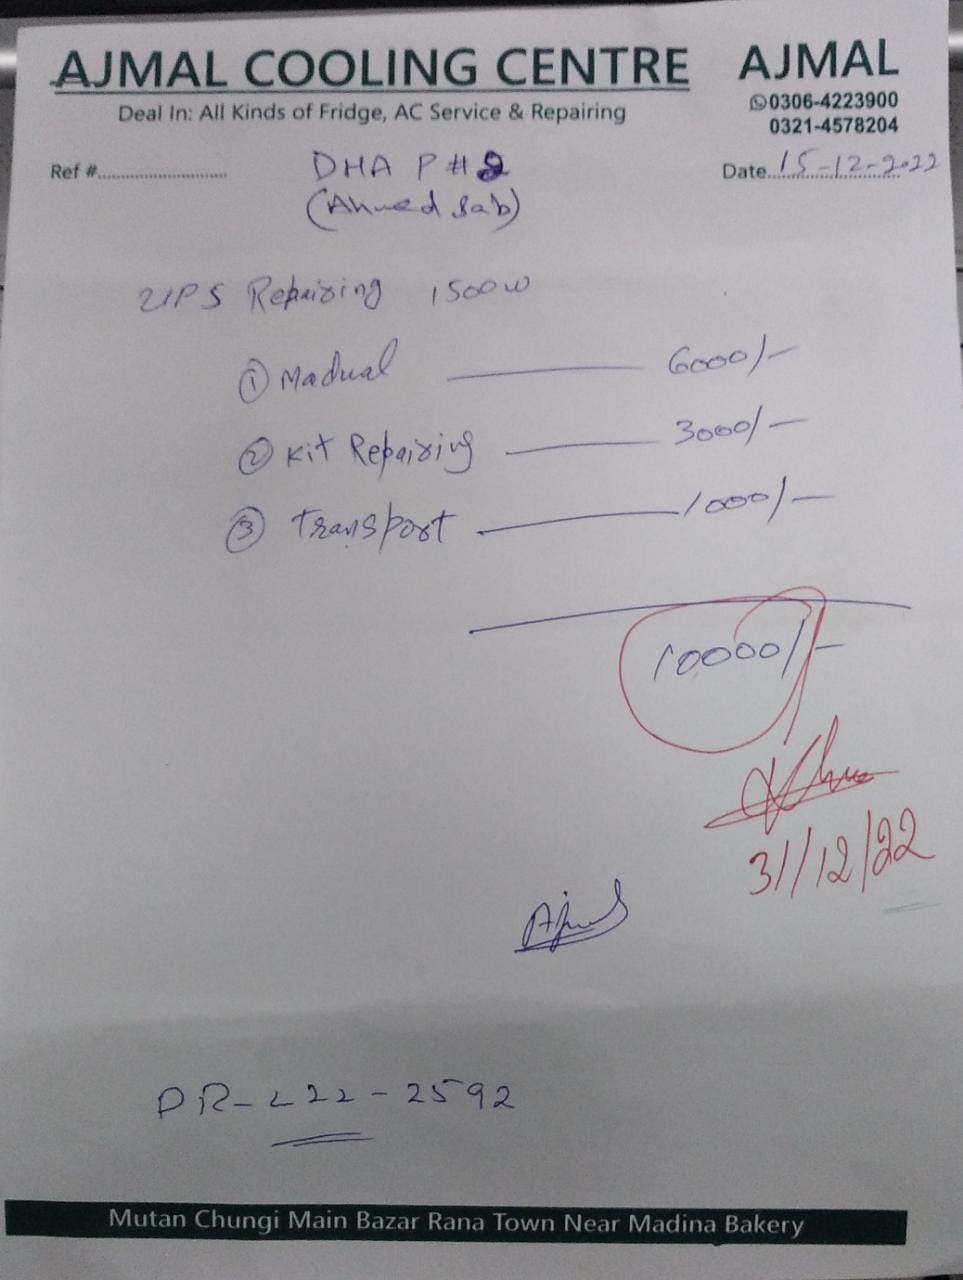 AJMAL COOLING CENTRE
Deal In: All Kinds of Fridge, AC Service & Repairing
AJMAL
0306-4223900
0321-4578204
Ref #..............................
DHA P # 2
Date 15-12-2022
(Ahmed Sab)
UPS Repairing 1500w
① Madual — 6000/-
② Kit Repairing — 3000/-
③ Transport — 1000/-
10000/-
31/12/22
Ajmal
PR-L22-2592
Mutan Chungi Main Bazar Rana Town Near Madina Bakery